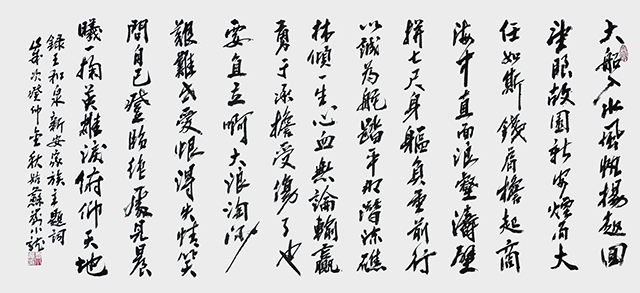 大船入水风帆扬起回
望眼故园新安烟雨大
任如斯铁肩担起商
海中直面浪壑涛壁
拼七尺身躯负重前行
以诚为舵踏平那潜流礁
林倾一生心血无论输赢
勇于承担受伤了也
要直立啊大浪淘沙
艰难成爱恨得失情笑
问自己登临绝处见晨
曦一掬英雄泪俯仰天地
录王和泉新安家族主题词
岁次癸卯金秋姑苏